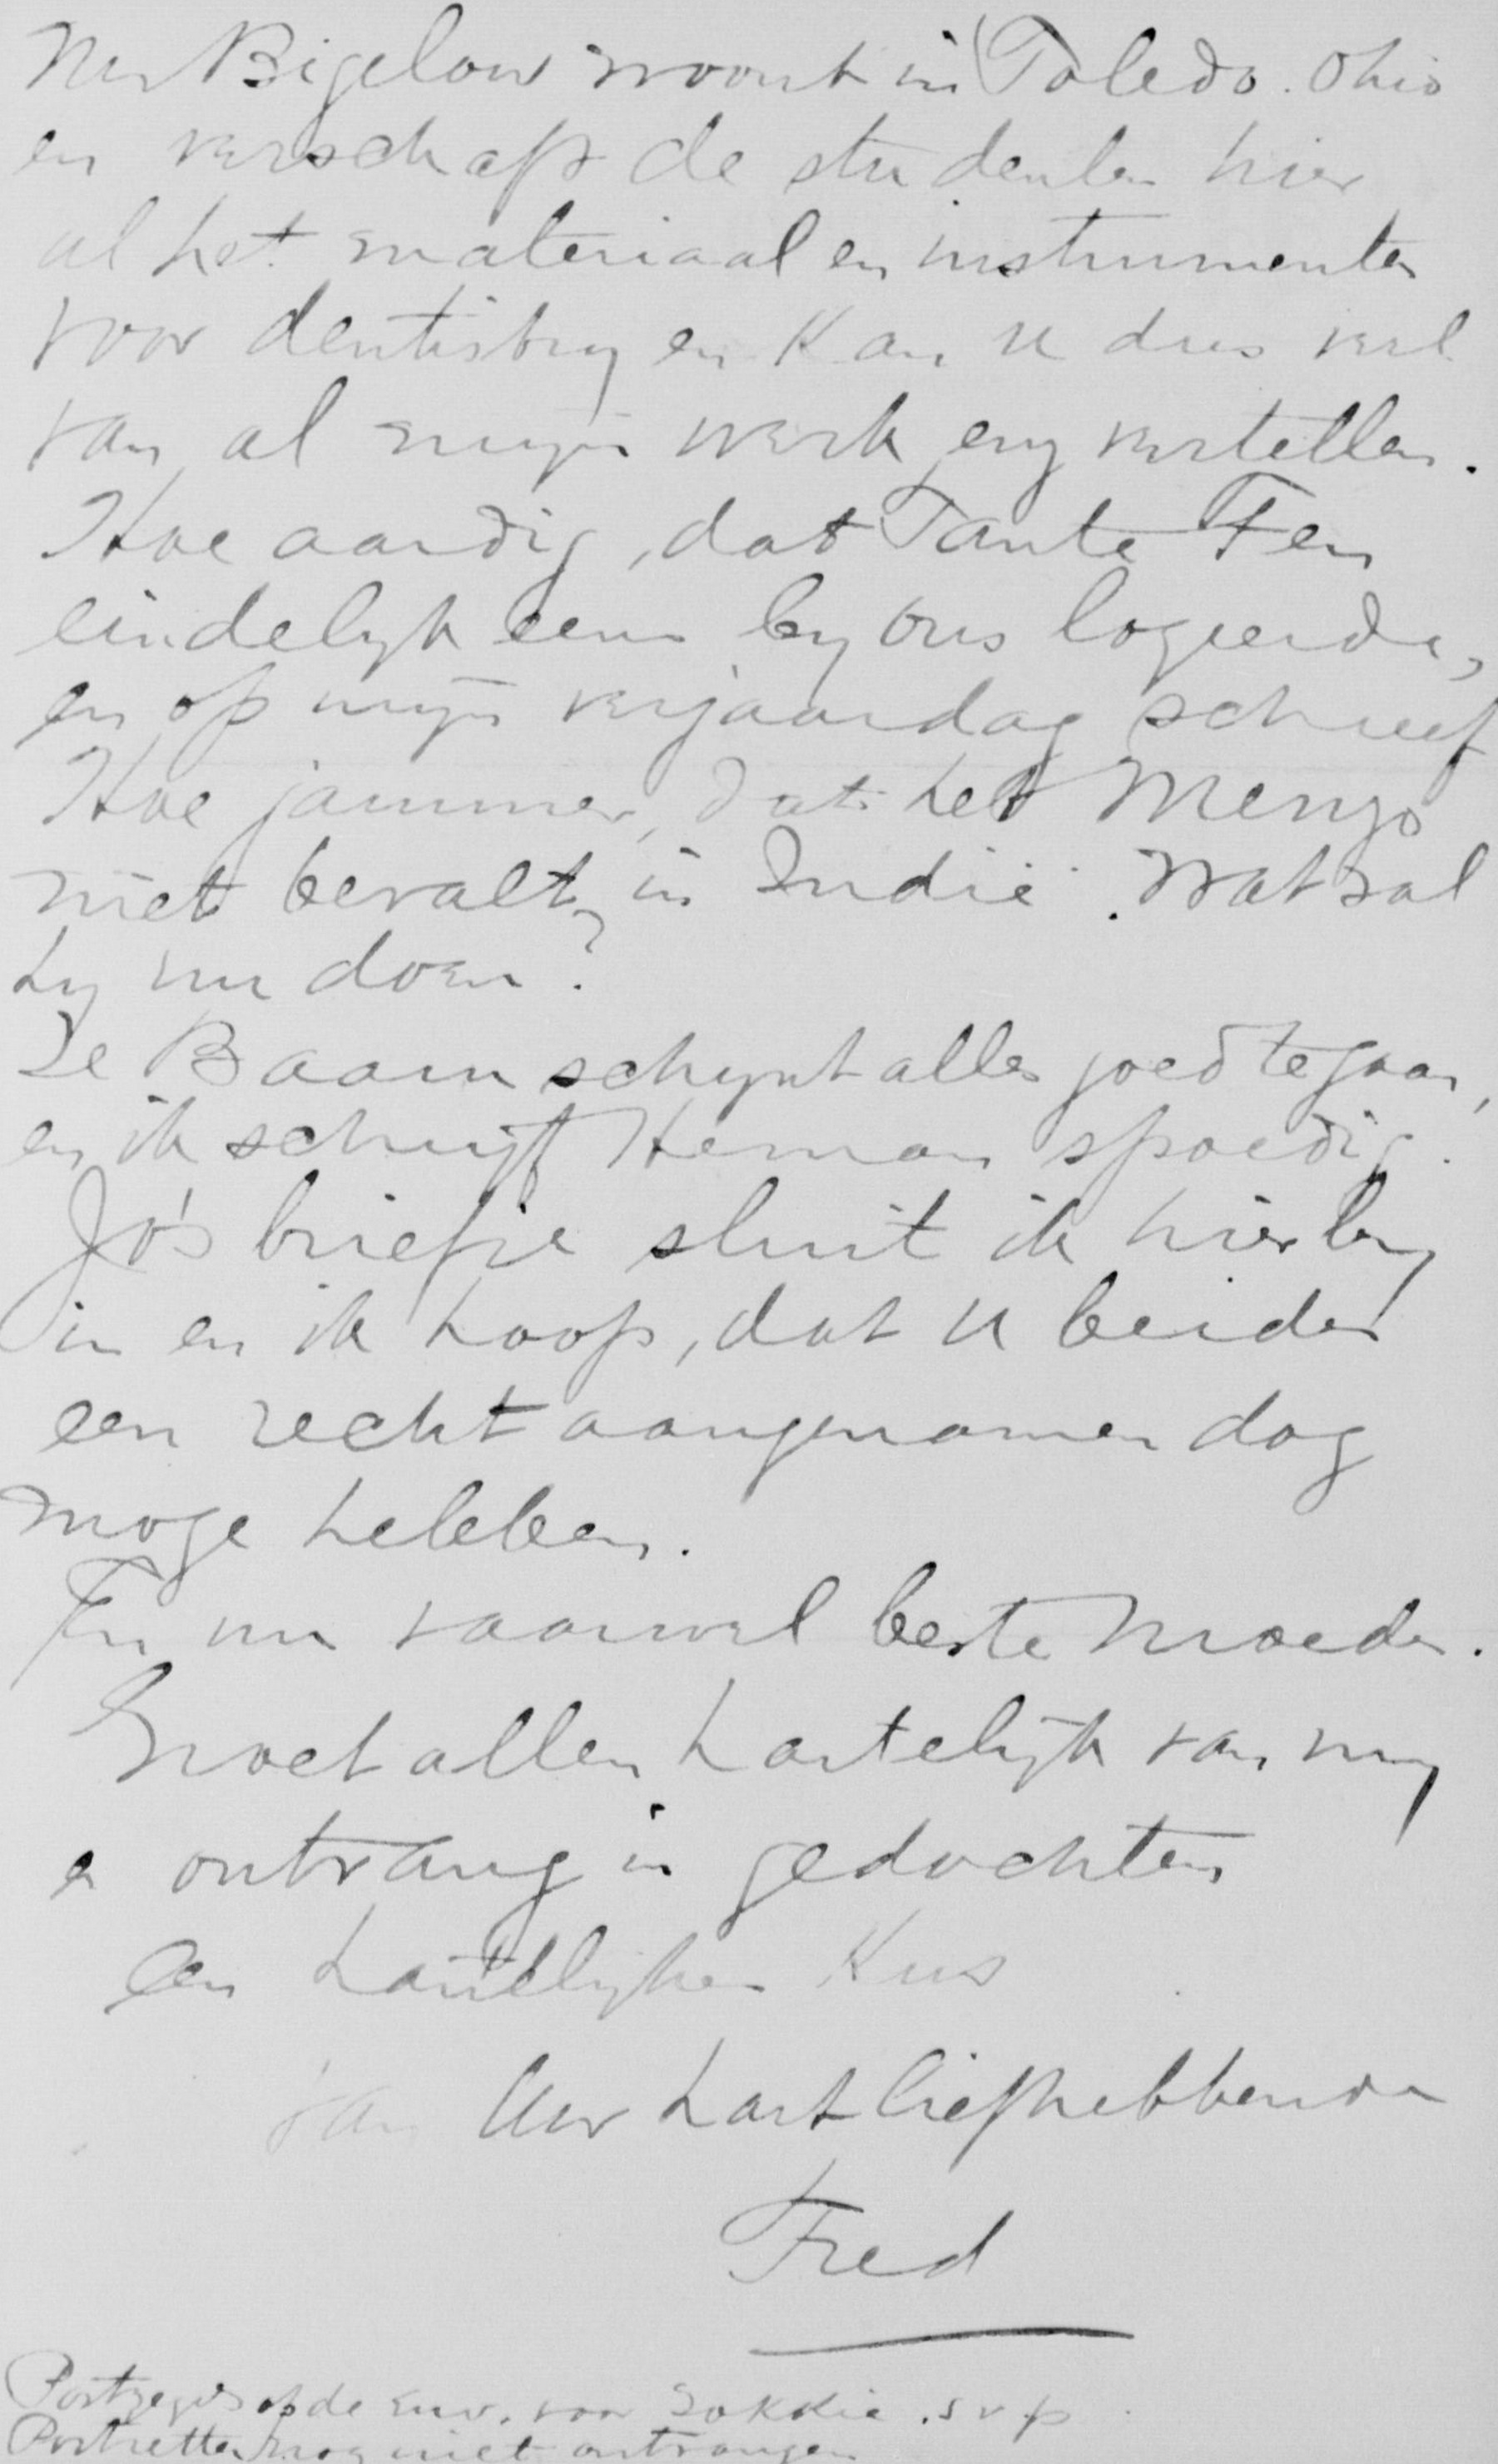 Mr Bigelow woont in Toledo. Ohio
en verschaft de studenten hier
al het materiaal en instrumenten
voor dentistry en kan u dus veel
van al mijn werk enz vertellen.
Hoe aardig, dat Tante Fen
eindelyk eens by ons logeerde,
en op mijn verjaardag schreef
Hoe jammer, dat het Menzo
niet bevalt, in Indië. Wat zal
hy nu doen?
Te Baarn schynt alles goed te gaan,
en ik schrijf Herman spoedig.
Jo's briefje sluit ik hierby
in en ik hoop, dat u beiden
een recht aangenamen dag
moge hebben.
En nu vaarwel beste Moeder.
Groet allen hartelijk van my
en ontvang in gedachten
een hartelyken kus
van Uw hartliefhebbende
Fred
Postzegels op de env. voor . s v p
Portretten nog niet ontvangen